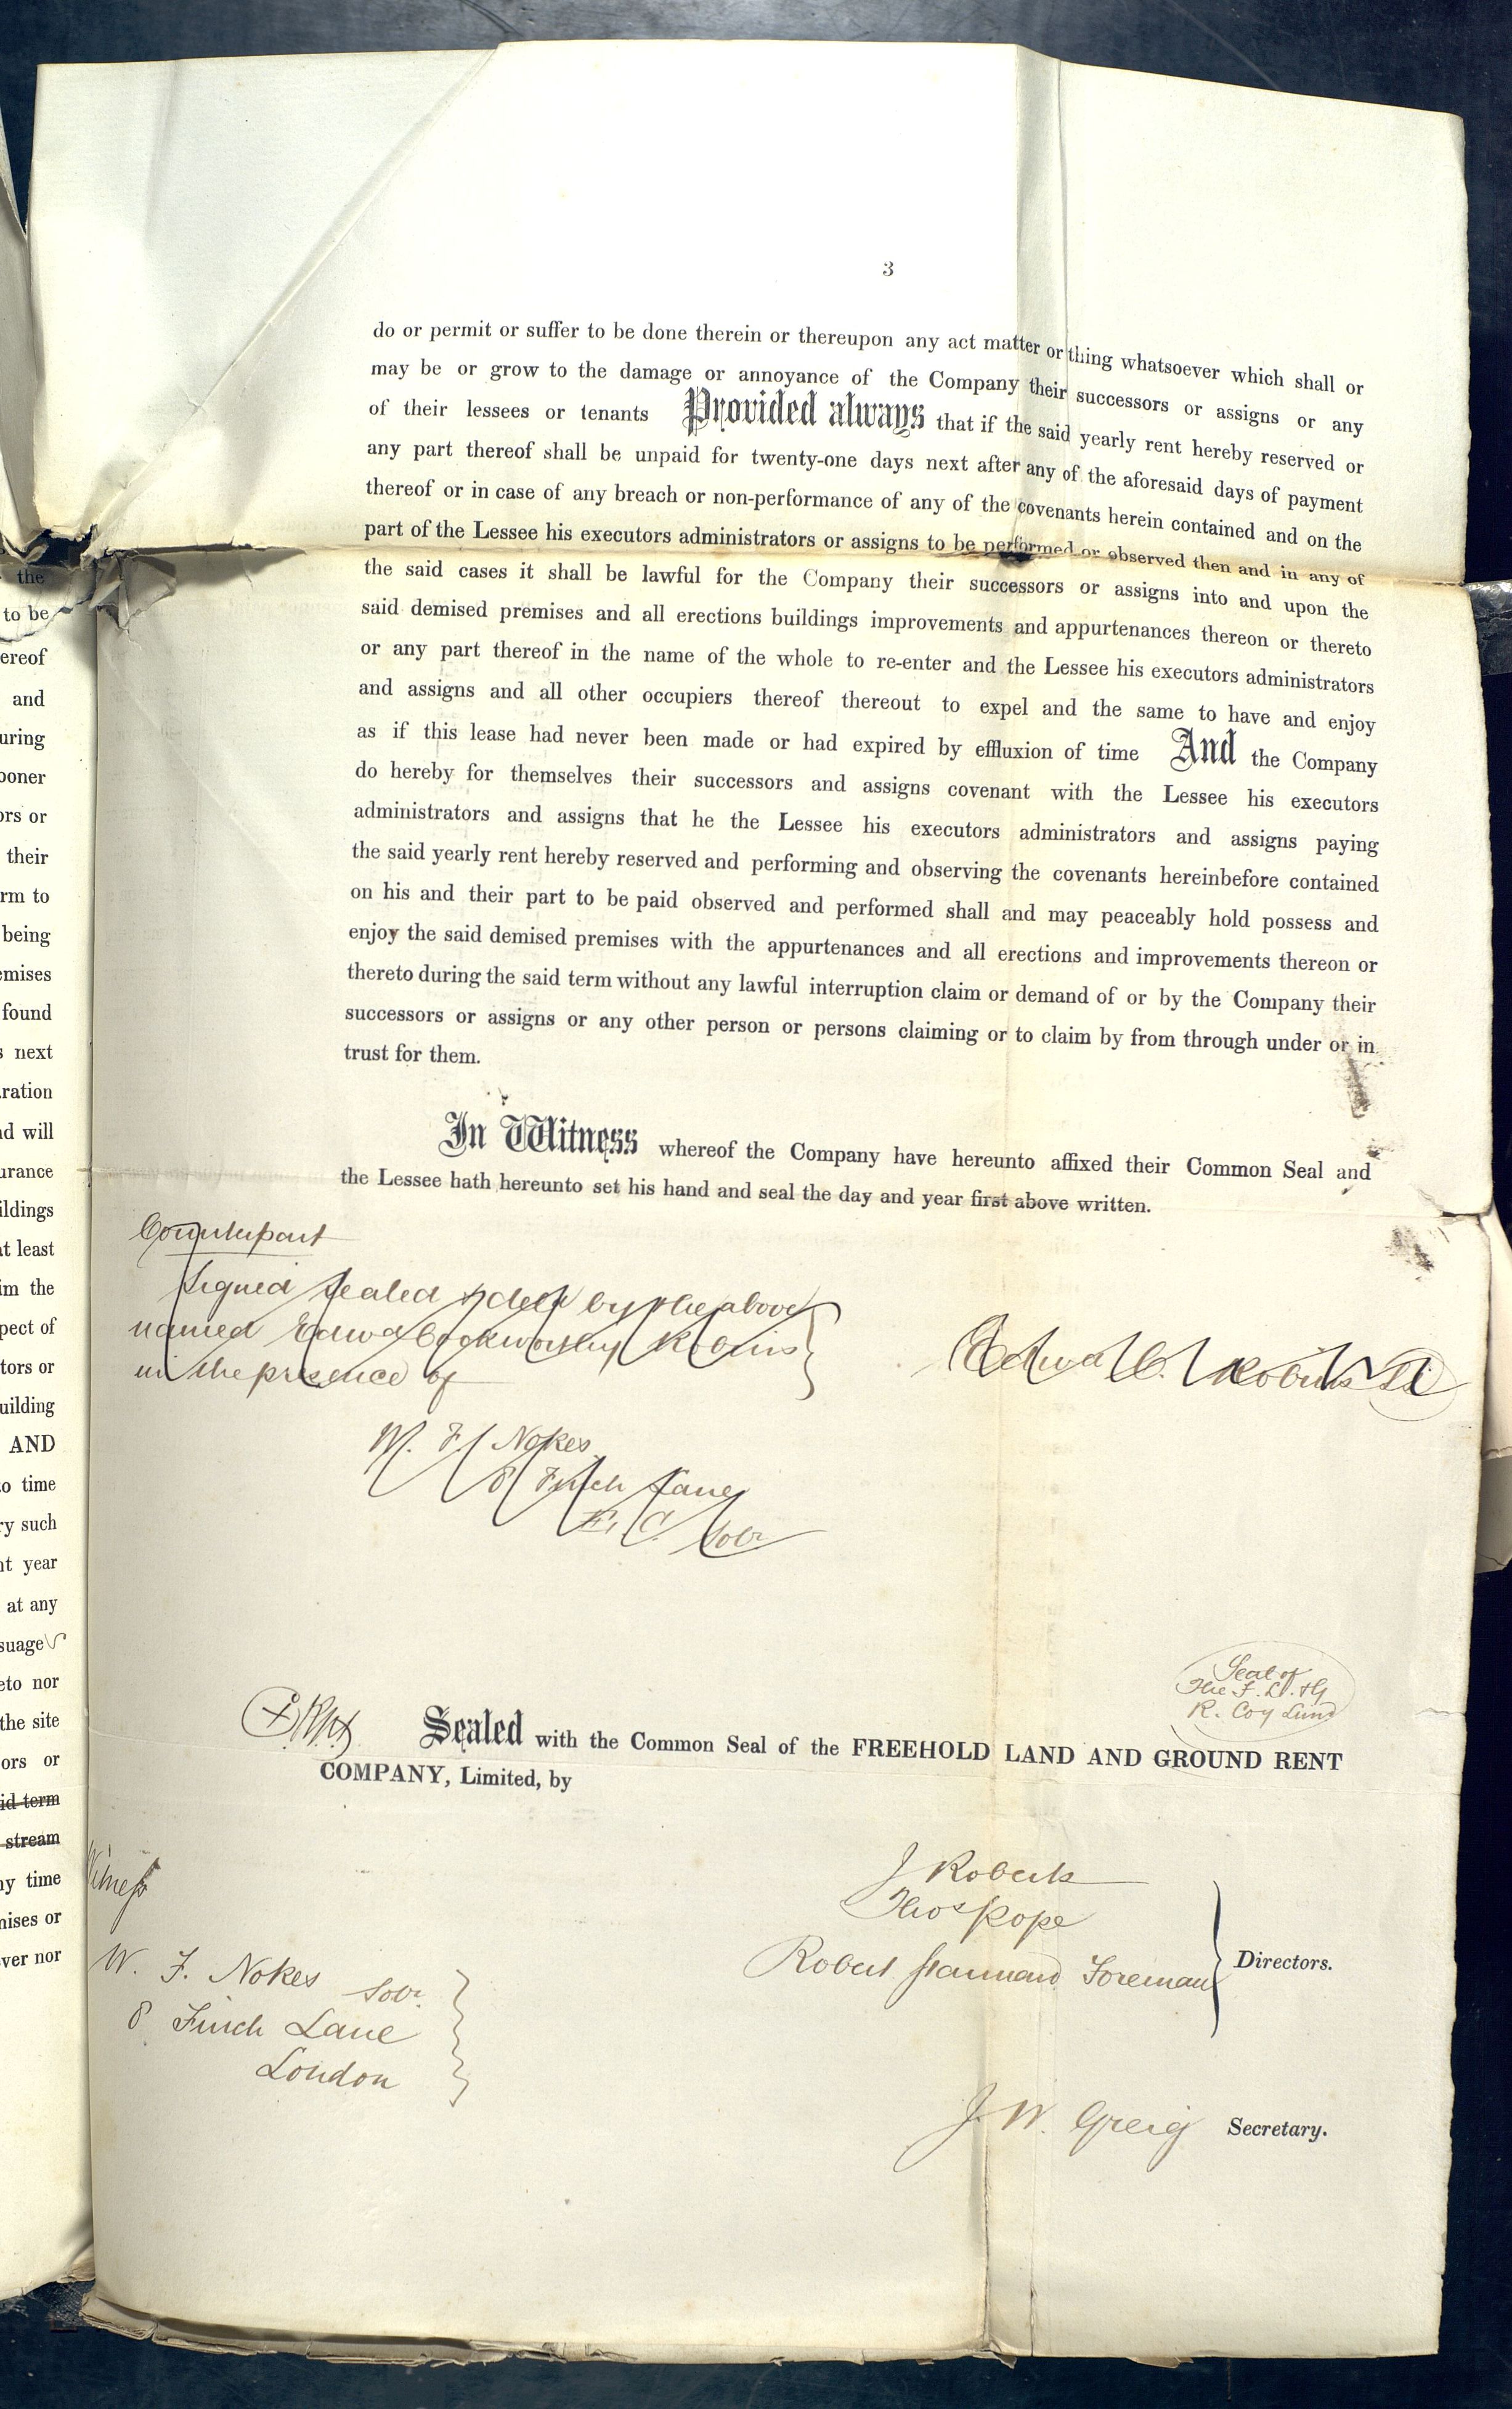 3
do or permit or suffer to be done therein or thereupon any act matter or thing whatsoever which shall or
may be or grow to the damage or annoyance of the Company their successors or assigns or any
of their lessees or tenants Provided always that if the said yearly rent hereby reserved or
any part thereof shall be unpaid for twenty-one days next after any of the aforesaid days of payment
thereof or in case of any breach or non-performance of any of the covenants herein contained and on the
part of the Lessee his executors administrators or assigns to be performed or observed then and in any of
the said cases it shall be lawful for the Company their successors or assigns into and upon the
said demised premises and all erections buildings improvements and appurtenances thereon or thereto
or any part thereof in the name of the whole to re-enter and the Lessee his executors administrators
and assigns and all other occupiers thereof thereout to expel and the same to have and enjoy
as if this lease had never been made or had expired by effluxion of time And the Company
do hereby for themselves their successors and assigns covenant with the Lessee his executors
administrators and assigns that he the Lessee his executors administrators and assigns paying
the said yearly rent hereby reserved and performing and observing the covenants hereinbefore contained
on his and their part to be paid observed and performed shall and may peaceably hold possess and
enjoy the said demised premises with the appurtenances and all erections and improvements thereon or
thereto during the said term without any lawful interruption claim or demand of or by the Company their
successors or assigns or any other person or persons claiming or to claim by from through under or in
trust for them.
In Witness whereof the Company have hereunto affixed their Common Seal and
the Lessee hath hereunto set his hand and seal the day and year first above written.
Counterpart
Signed sealed & deld by the above
named Edwd Cookworthy Robins
in the presence of
Edwd C. Robins LS
W. F. Nokes
8 Finch Lane
E. C. Solr
Seal of
The F. L. & G
R. Coy Limd
Sealed with the Common Seal of the FREEHOLD LAND AND GROUND RENT
COMPANY, Limited, by
Witness
J Roberts
Thos Pope
Robert Stannard Foreman
Directors.
W. F. Nokes Solr
8 Finch Lane
London
J. W. Greig Secretary.
the
to be
ereof
and
uring
ooner
ors or
their
rm to
being
emises
found
s next
ration
nd will
urance
ildings
at least
im the
pect of
tors or
uilding
AND
to time
ry such
nt year
at any
suage
eto nor
the site
ors or
id term
stream
ny time
mises or
ver nor